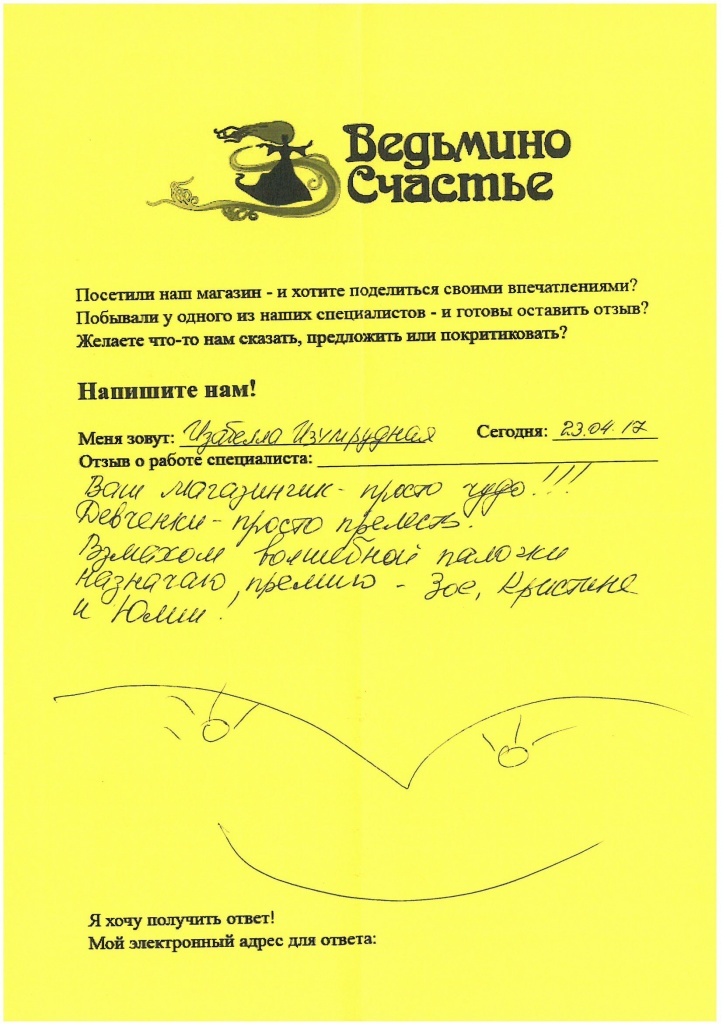 Ведьмино
Счастье
Посетили наш магазин - и хотите поделиться своими впечатлениями?
Побывали у одного из наших специалистов - и готовы оставить отзыв?
Желаете что-то нам сказать, предложить или покритиковать?
Напишите нам!
Меня зовут: Изабелла Изумрудная Сегодня: 23.04.17
Отзыв о работе специалиста:
Ваш магазинчик - просто чудо!!!
Девченки - просто прелесть.
Взмахом волшебной палочки
назначаю премию - Зое, Кристине
и Юлии!
Я хочу получить ответ!
Мой электронный адрес для ответа: